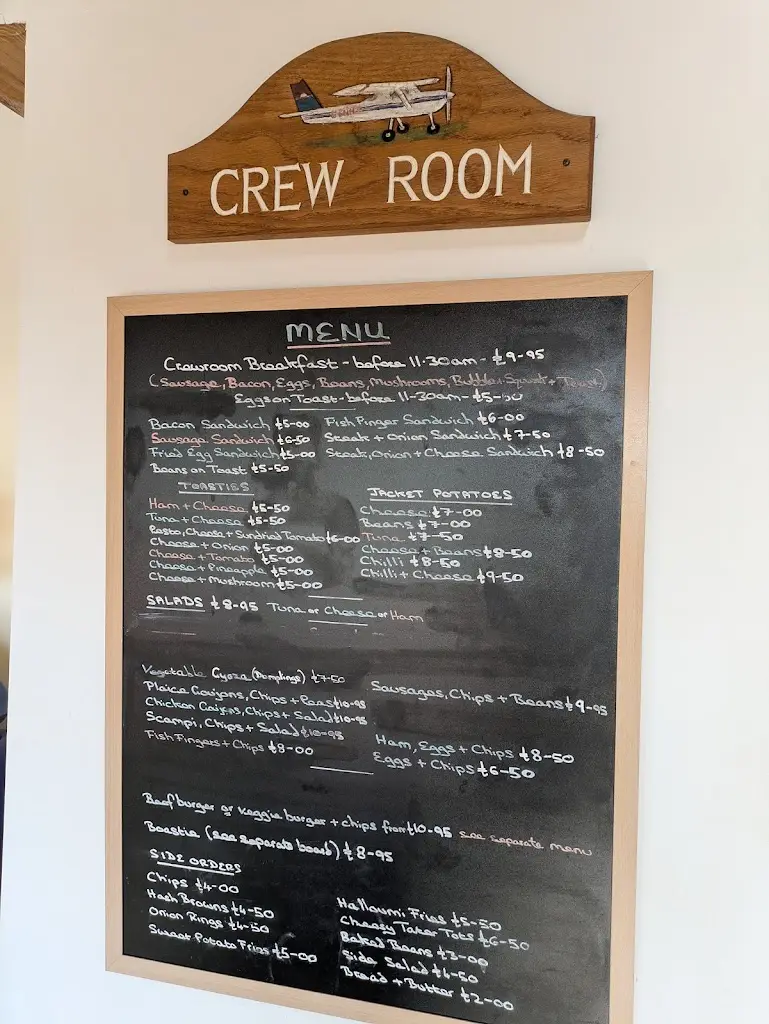 CREW ROOM
MENU
Crewroom Breakfast - before 11.30am - £9-95
(Sausage, Bacon, Eggs, Beans, Mushrooms, Bubble+Squeak + Toast)
Eggs on Toast - before 11-30am - £5-50
Bacon Sandwich £5-00
Sausage Sandwich £6-50
Fried Egg Sandwich £5-00
Beans on Toast £5-50
Fish Finger Sandwich £6-00
Steak + Onion Sandwich £7-50
Steak, Onion + Cheese Sandwich £8-50
TOASTIES
Ham + Cheese £5-50
Tuna + Cheese £5-50
Pesto, Cheese + Sundried Tomato £6-00
Cheese + Onion £5-00
Cheese + Tomato £5-00
Cheese + Pineapple £5-00
Cheese + Mushroom £5-00
JACKET POTATOES
Cheese £7-00
Beans £7-00
Tuna £7-50
Cheese + Beans £8-50
Chilli £8-50
Chilli + Cheese £9-50
SALADS £8-95 Tuna or Cheese or Ham
Vegetable Gyoza (Dumplings) £7-50
Plaice Goujons, Chips + Peas £10-95
Chicken Goujons, Chips + Salad £10-95
Scampi, Chips + Salad £10-95
Fish Fingers + Chips £9-00
Sausages, Chips + Beans £9-95
Ham, Eggs + Chips £8-50
Eggs + Chips £6-50
Beefburger or Veggie burger + chips from £10-95 see separate menu
Beastie (see separate board) £8-95
SIDE ORDERS
Chips £4-00
Hash Browns £4-50
Onion Rings £4-50
Sweet Potato Fries £5-00
Halloumi Fries £5-50
Cheesy Tater Tots £6-50
Baked Beans £3-00
Side Salad £4-50
Bread + Butter £2-00